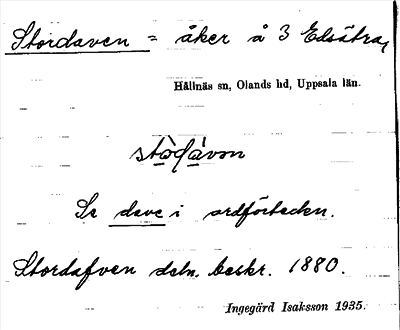 Stordaven = åker å 3 Edsätra,
Hållnäs sn, Olands hd, Uppsala län.
stòḍávon
Se dave i ordförteckn.
Stordafven deln. beskr. 1880.
Ingegärd Isaksson 1935.